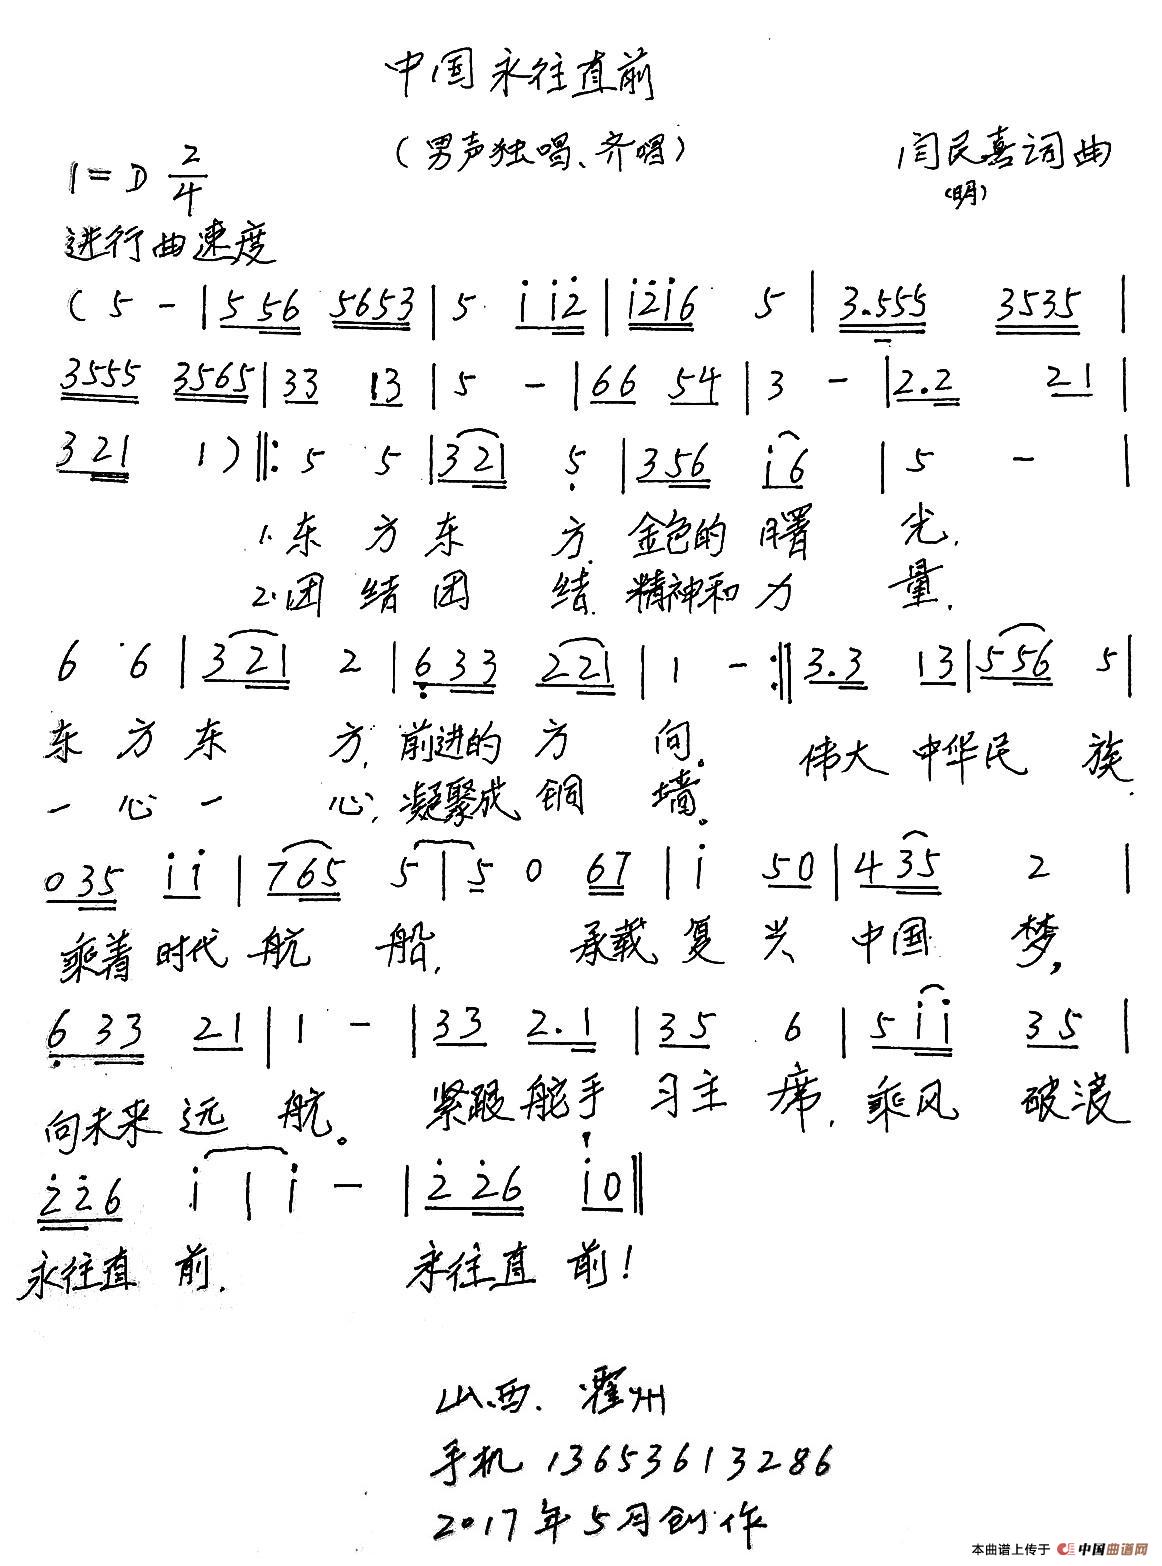 中国永往直前
(男声独唱、齐唱)
闫民喜词曲
(明)
1=D 2/4
进行曲速度
( 5 - | 5 56 5653 | 5 i i2 | i2i6 5 | 3.555 3535 |
3555 3565 | 33 13 | 5 - | 66 54 | 3 - | 2.2 21 |
3 21 1 ) ‖: 5 5 | 3 21 5 | 3 56 i6 | 5 - |
1.东方东方.金色的曙光.
2.团结团结.精神和力量.
6 6 | 3 21 2 | 6 33 2 21 | 1 - :‖ 3.3 13 | 5 56 5 |
东方东方,前进的方向。伟大中华民族.
一心一心,凝聚成铜墙。
0 35 i i | 7 65 5 | 5 0 67 | i 50 | 4 35 2 |
乘着时代航船,承载复兴中国梦,
6 33 21 | 1 - | 33 2.1 | 35 6 | 5 i i 35 |
向未来远航。紧跟舵手习主席,乘风破浪
2 2 6 i | i - | 2 26 i0 ‖
永往直前.永往直前!
山西.霍州
手机 13653613286
2017年5月创作
本曲谱上传于 中国曲谱网